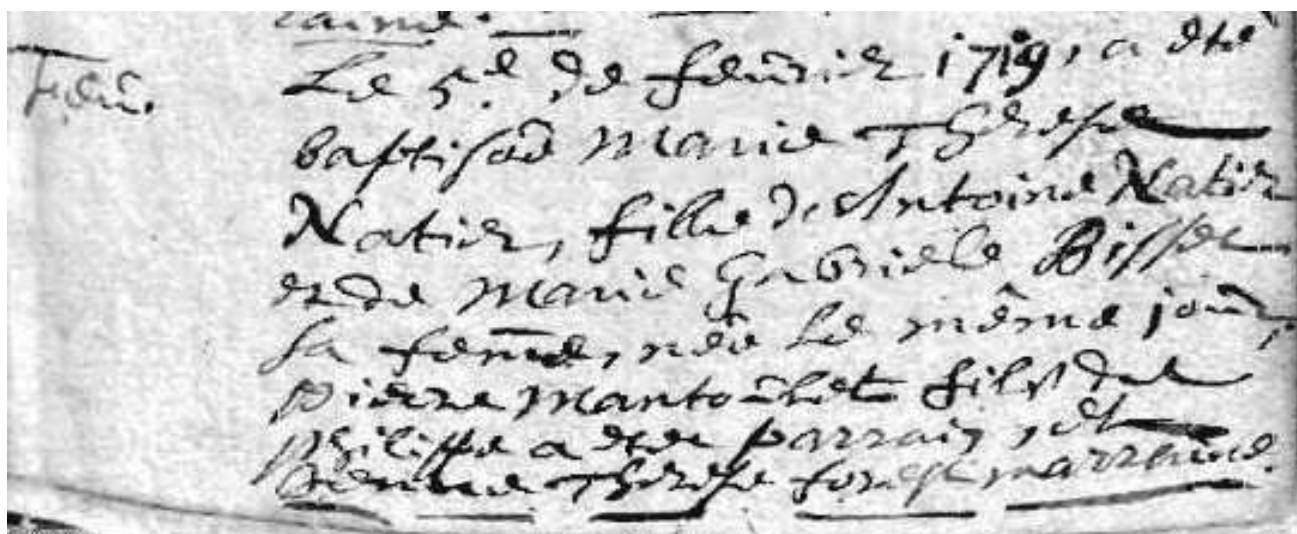 Feüu.
Le 5e. de feürier 1719, a eté
baptisée Marie Therese
Natier, fille de Antoine Natier
et de Marie Gabriele Bisser
sa femme, née le même joür,
Pierre Mantoület fils de
Philippe a eté parrain, et
Jenne Therese forest marraine.